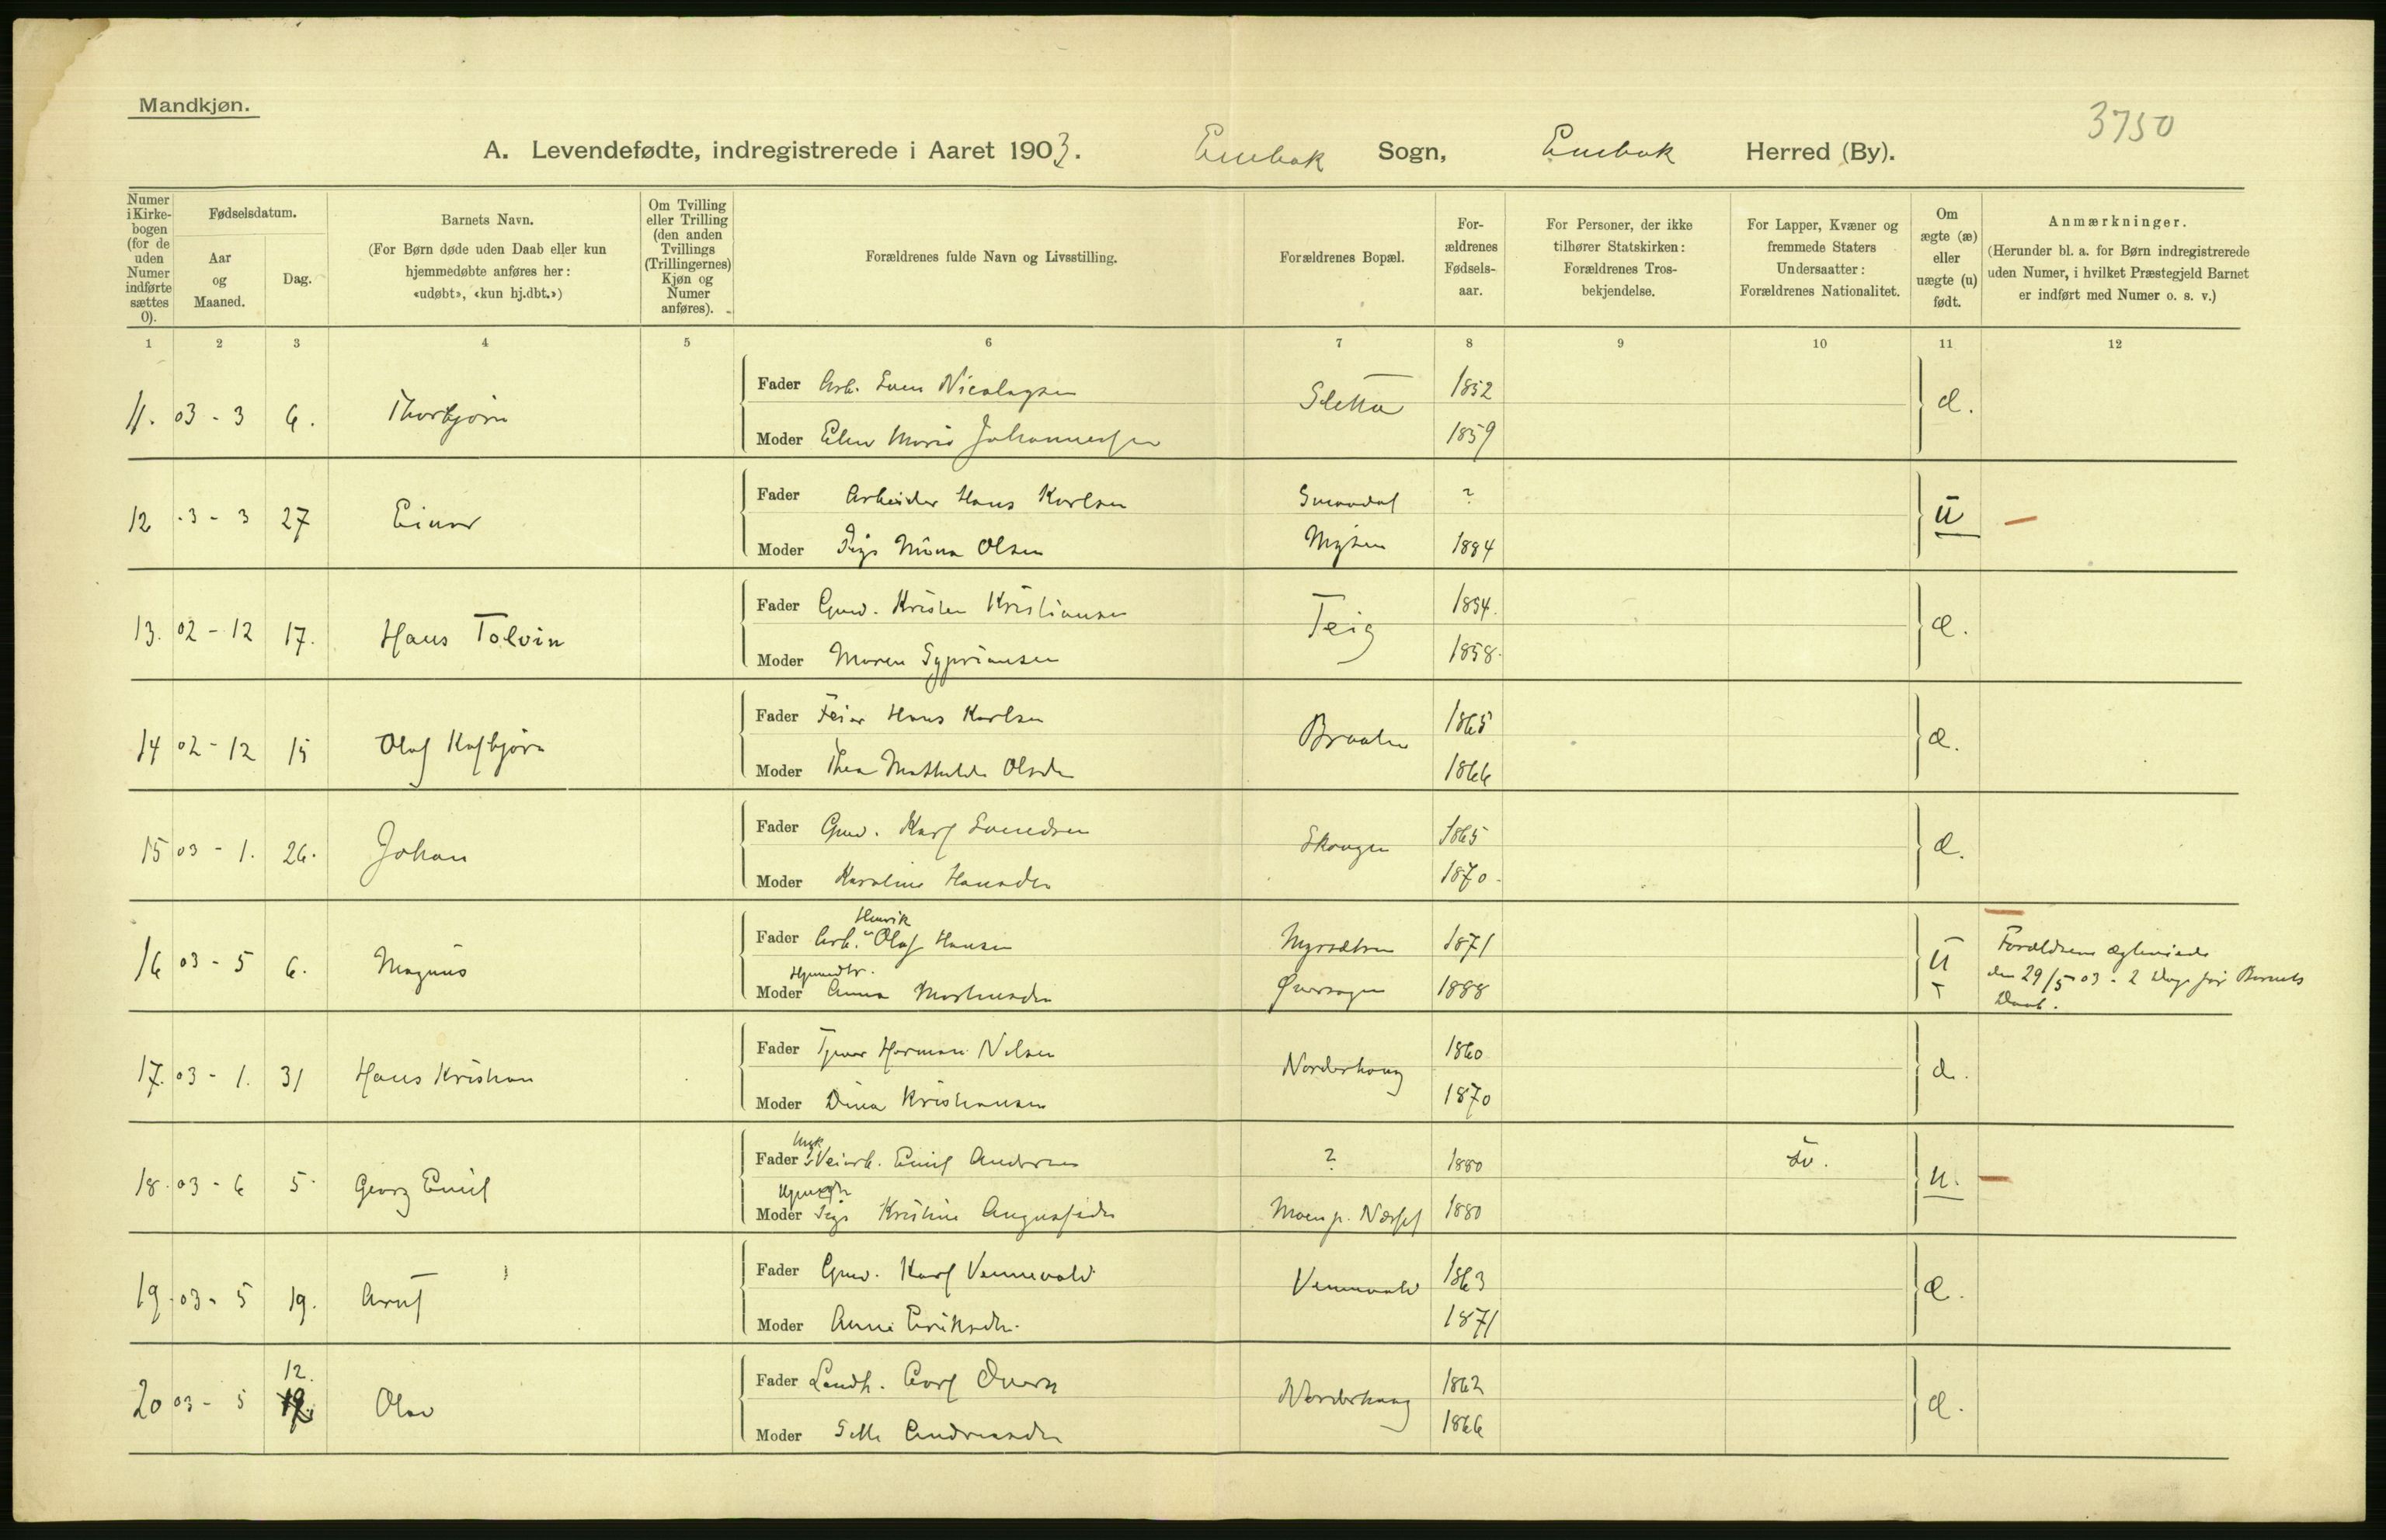 Mandkjøn.
3750
A. Levendefødte, indregistrerede i Aaret 1903. Enebak Sogn, Enebak Herred (By).
Numer i Kirkebogen (for de uden Numer indførte sættes 0).
Fødselsdatum.
Aar og Maaned.
Dag.
Barnets Navn.
(For Børn døde uden Daab eller kun hjemmedøbte anføres her: «udøbt», «kun hj.dbt.»)
Om Tvilling eller Trilling (den anden Tvillings (Trillingernes) Kjøn og Numer anføres).
Forældrenes fulde Navn og Livsstilling.
Forældrenes Bopæl.
Forældrenes Fødselsaar.
For Personer, der ikke tilhører Statskirken: Forældrenes Trosbekjendelse.
For Lapper, Kvæner og fremmede Staters Undersaatter: Forældrenes Nationalitet.
Om ægte (æ) eller uægte (u) født.
Anmærkninger.
(Herunder bl. a. for Børn indregistrerede uden Numer, i hvilket Præstegjeld Barnet er indført med Numer o. s. v.)
1 2 3 4 5 6 7 8 9 10 11 12
11. 03 - 3 6. Thorbjørn Fader Arb. Sven Nicolaysen Sletta 1852 æ.
Moder Elen Marie Johannessen 1859
12 03 - 3 27 Einar Fader Arbeider Hans Karlsen Smaadal ? u
Moder Pige Mina Olsen Mysen 1884
13. 02 - 12 17. Hans Tolvin Fader Gmd. Kristen Kristiansen Teig 1854. æ.
Moder Maren Sypriansen 1858.
14 02 - 12 15 Olaf Kolbjørn Fader Feier Hans Karlsen Braaten 1865 æ.
Moder Thea Mathilde Olsdr 1866
15 03 - 1. 26. Johan Fader Gmd. Karl Svendsen Skaugen 1865 æ.
Moder Karoline Hansdr 1870.
16 03 - 5 6. Magnus Fader Arb. Henrik Olaf Hansen Myrsætren 1871 u Forældrene ægteviede
Moder Anna 1888 den 29/5 03 - 2 Dage før Barnets
Daab.
17. 03 - 1. 31 Hans Kristian Fader Herman Nilsen Norderhaug 1860 æ.
Moder Dina Kristiansen 1870
18. 03 - 6 5. Georg Emil Fader Ugk. Veiarb. Emil Andersen ? 1880 Sv. u.
Moder Pige Kristine Augustsdr Moen p. 1880
19. 03 - 5 19. Arnt Fader Gmd. Karl Vennevold Vennevold 1863 æ.
Moder Anne Eriksdr. 1871
20 03 - 5 12. Olav Fader Landh. Carl Norderhaug 1862 æ.
Moder Andreasdr 1866